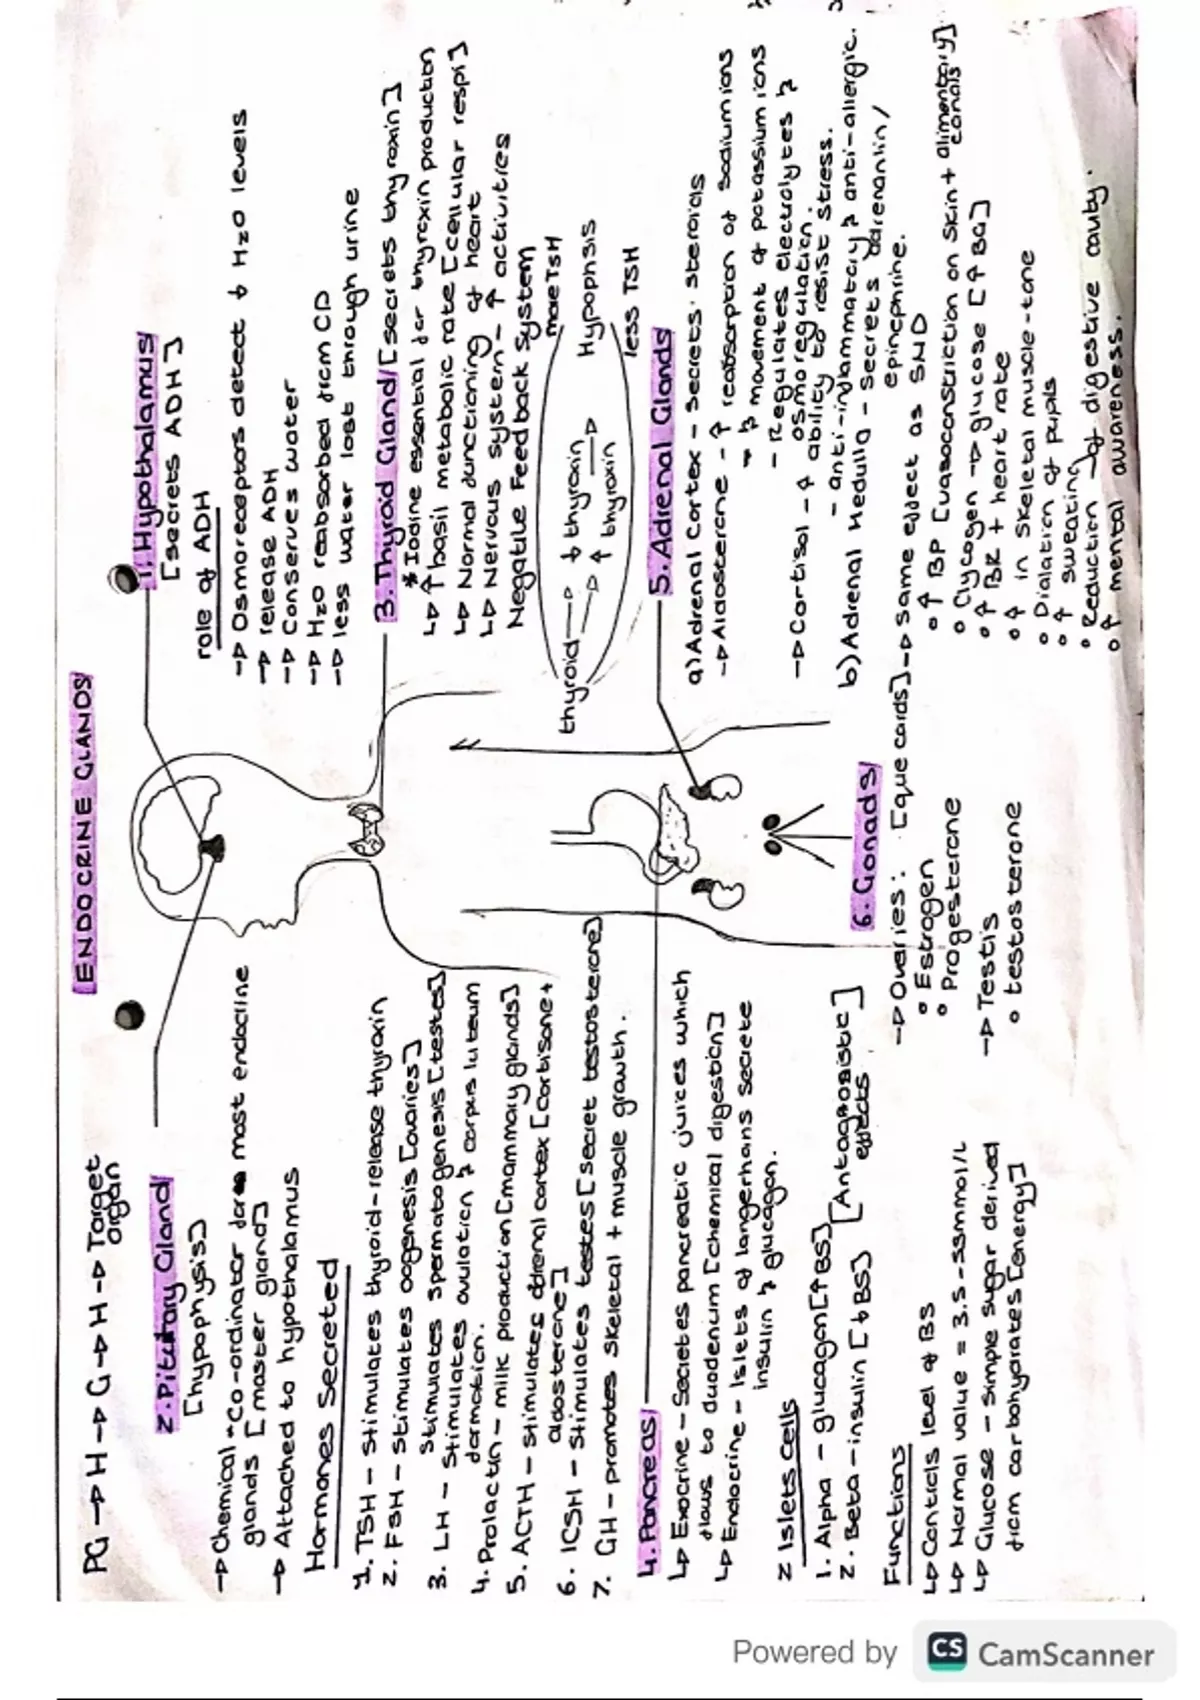 ENDOCRINE GLANDS
PG → H → G → H → Target
organ
2. Pituitary Gland
[hypophysis]
→ Chemical "Co-ordinator for most endocrine
glands [master gland]
→ Attached to hypothalamus
Hormones Secreted
1. TSH - Stimulates thyroid-release thyroxin
2. FSH - Stimulates oogenesis [ovaries]
Stimulates Spermatogenesis [testes]
3. LH - Stimulates ovulation & corpus luteum
formation.
4. Prolactin - milk production [mammary glands]
5. ACTH - Stimulates adrenal cortex [cortisone +
aldosterone]
6. ICSH - Stimulates testes [secret testosterone]
7. GH - promotes skeletal + muscle growth.
4. Pancreas
↳ Exocrine - Secretes pancreatic juices which
flows to duodenum [chemical digestion]
↳ Endocrine - Islets of langerhans secrete
insulin & glucagon.
2 Islets cells
1. Alpha - glucagon [↑BS]
2. Beta - insulin [↓BS] [Antagonistic]
effects
Functions
↳ Controls level of BS
↳ Normal value = 3.5 - 5smmol/L
↳ Glucose - simple sugar derived
from carbohydrates [energy]
1. Hypothalamus
[secrets ADH]
role of ADH
→ Osmoreceptors detect ↓ H2O levels
→ release ADH
→ Conserves water
→ H2O reabsorbed from CD
→ less water lost through urine
3. Thyroid Gland [secrets thyroxin]
* Iodine essential for thyroxin production
↳ ↑ basil metabolic rate [cellular respi]
↳ Normal functioning of heart
↳ Nervous system - ↑ activities
Negative Feedback System
thyroid → ↓ thyroxin
more TSH
→ ↑ thyroxin → Hypophsis
less TSH
5. Adrenal Glands
a) Adrenal Cortex - secrets steroids
→ Aldosterone - ↑ reabsorption of sodium ions
→ & movement of potassium ions
- Regulates electrolytes &
osmoregulation.
→ Cortisol - ↑ ability to resist stress.
- anti-inflammatory & anti-allergic.
b) Adrenal Medulla - Secrets adrenanlin/
epinephrine.
→ Same effect as SND
° ↑ BP [vasoconstriction on skin + alimentary]
canals
° Glycogen → glucose [↑ BG]
° ↑ BR + heart rate
° ↑ in skeletal muscle-tone
° Dialation of pupils
° ↑ sweating
° Reduction of digestive cavity.
° ↑ mental awareness.
6. Gonads
→ Ovaries: [que cards]
° Estrogen
° Progesterone
→ Testis
° testosterone
Powered by CS CamScanner